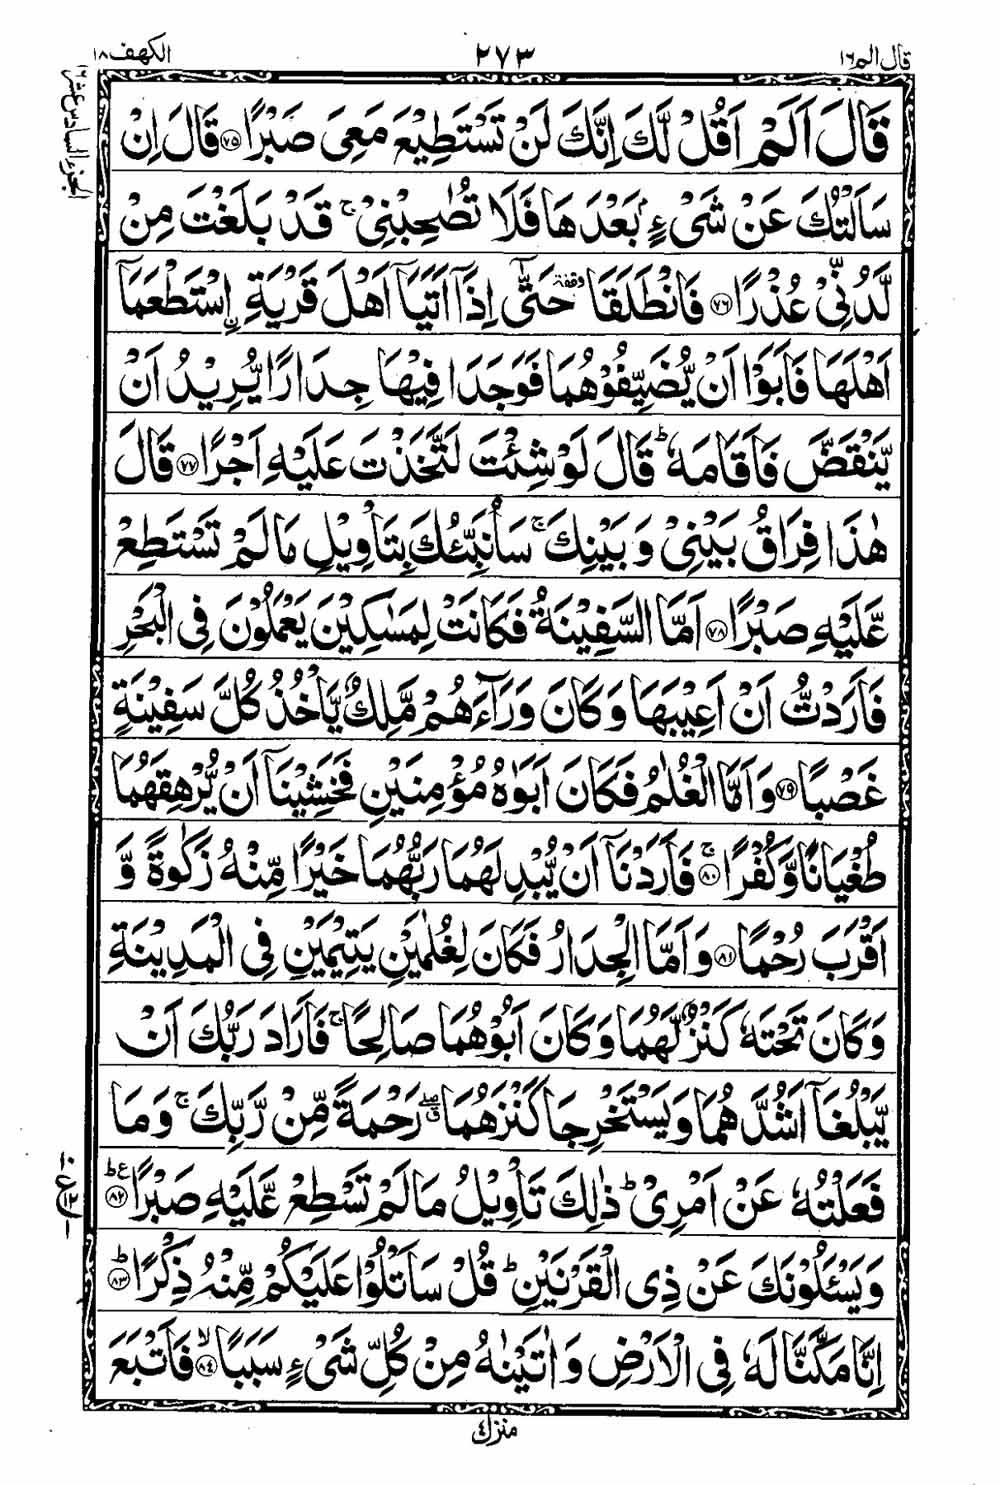 قال الم ١٦
٢٧٣
الكهف ١٨
الجزء السادس عشر ١٦
قَالَ اَلَمْ اَقُلْ لَّكَ اِنَّكَ لَنْ تَسْتَطِيْعَ مَعِىَ صَبْرًا ﴿٧٥﴾ قَالَ اِنْ
سَاَلْتُكَ عَنْ شَىْءٍۭ بَعْدَهَا فَلَا تُصٰحِبْنِىْ ۚ قَدْ بَلَغْتَ مِنْ
لَّدُنِّىْ عُذْرًا ﴿٧٦﴾ فَانْطَلَقَا وقفة حَتّٰۤى اِذَاۤ اَتَيَاۤ اَهْلَ قَرْيَةِ ࣙاسْتَطْعَمَاۤ
اَهْلَهَا فَاَبَوْا اَنْ يُّضَيِّفُوْهُمَا فَوَجَدَا فِيْهَا جِدَارًا يُّرِيْدُ اَنْ
يَّنْقَضَّ فَاَقَامَهٗ ؕ قَالَ لَوْ شِئْتَ لَتَّخَذْتَ عَلَيْهِ اَجْرًا ﴿٧٧﴾ قَالَ
هٰذَا فِرَاقُ بَيْنِىْ وَبَيْنِكَ ۚ سَاُنَبِّئُكَ بِتَاْوِيْلِ مَا لَمْ تَسْتَطِعْ
عَّلَيْهِ صَبْرًا ﴿٧٨﴾ اَمَّا السَّفِيْنَةُ فَكَانَتْ لِمَسٰكِيْنَ يَعْمَلُوْنَ فِى الْبَحْرِ
فَاَرَدْتُّ اَنْ اَعِيْبَهَا وَكَانَ وَرَآءَهُمْ مَّلِكٌ يَّاْخُذُ كُلَّ سَفِيْنَةٍ
غَصْبًا ﴿٧٩﴾ وَاَمَّا الْغُلٰمُ فَكَانَ اَبَوٰهُ مُؤْمِنَيْنِ فَخَشِيْنَاۤ اَنْ يُّرْهِقَهُمَا
طُغْيَانًا وَّكُفْرًا ۚ ﴿٨٠﴾ فَاَرَدْنَاۤ اَنْ يُّبْدِلَهُمَا رَبُّهُمَا خَيْرًا مِّنْهُ زَكٰوةً وَّ
اَقْرَبَ رُحْمًا ﴿٨١﴾ وَاَمَّا الْجِدَارُ فَكَانَ لِغُلٰمَيْنِ يَتِيْمَيْنِ فِى الْمَدِيْنَةِ
وَكَانَ تَحْتَهٗ كَنْزٌ لَّهُمَا وَكَانَ اَبُوْهُمَا صَالِحًا ۚ فَاَرَادَ رَبُّكَ اَنْ
يَّبْلُغَاۤ اَشُدَّهُمَا وَيَسْتَخْرِجَا كَنْزَهُمَا ۖق رَحْمَةً مِّنْ رَّبِّكَ ۚ وَمَا
فَعَلْتُهٗ عَنْ اَمْرِىْ ؕ ذٰلِكَ تَاْوِيْلُ مَا لَمْ تَسْطِعْ عَّلَيْهِ صَبْرًا ؕ ع ﴿٨٢﴾
وَيَسْـَٔلُوْنَكَ عَنْ ذِى الْقَرْنَيْنِ ؕ قُلْ سَاَتْلُوْا عَلَيْكُمْ مِّنْهُ ذِكْرًا ؕ ﴿٨٣﴾
اِنَّا مَكَّنَّا لَهٗ فِى الْاَرْضِ وَاٰتَيْنٰهُ مِنْ كُلِّ شَىْءٍ سَبَبًا ۙ ﴿٨٤﴾ فَاَتْبَعَ
منزل ٤